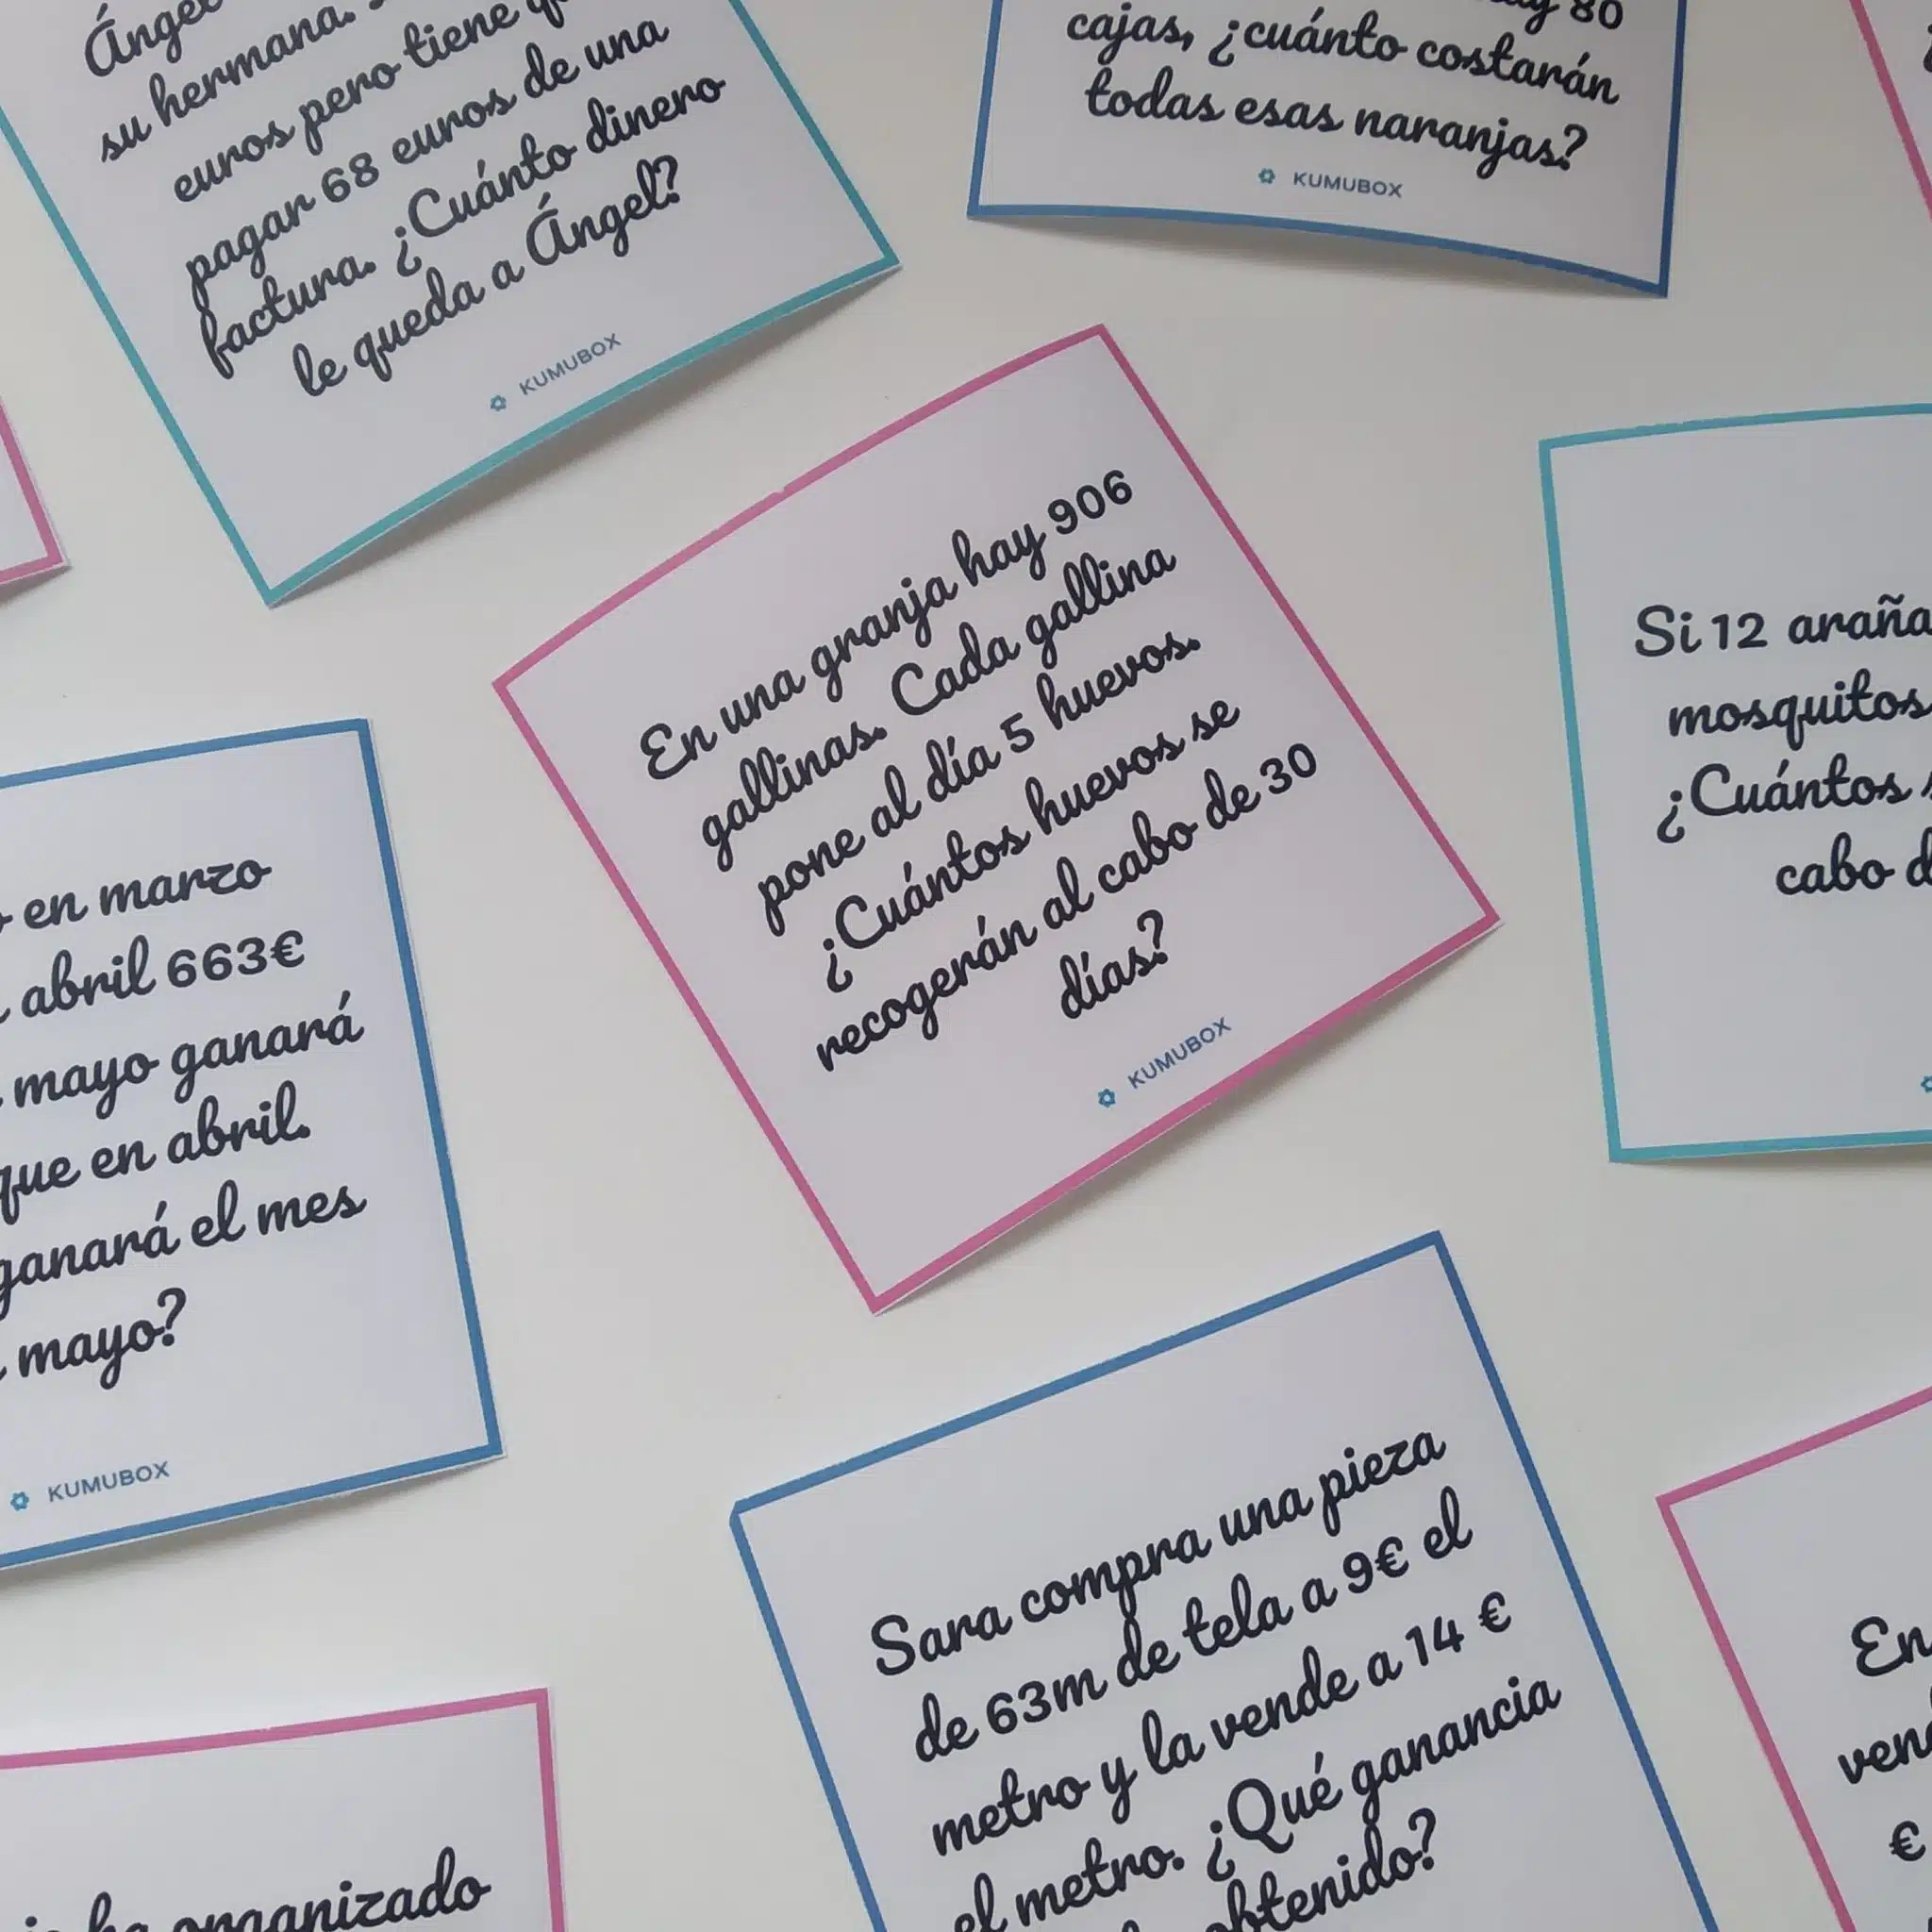 su hermana.
euros pero tiene
pagar 68 euros de una
factura. ¿Cuánto dinero
le queda a Ángel?
KUMUBOX
80
cajas, ¿cuánto costarán
todas esas naranjas?
KUMUBOX
En una granja hay 906
gallinas. Cada gallina
pone al día 5 huevos.
¿Cuántos huevos se
recogerán al cabo de 30
días?
KUMUBOX
Si 12
mosquitos
¿Cuántos
cabo
en marzo
abril 663€
mayo ganará
que en abril.
ganará el mes
mayo?
KUMUBOX
Sara compra una pieza
de 63m de tela a 9€ el
metro y la vende a 14 €
el metro. ¿Qué ganancia
obtenido?
organizado
En
€